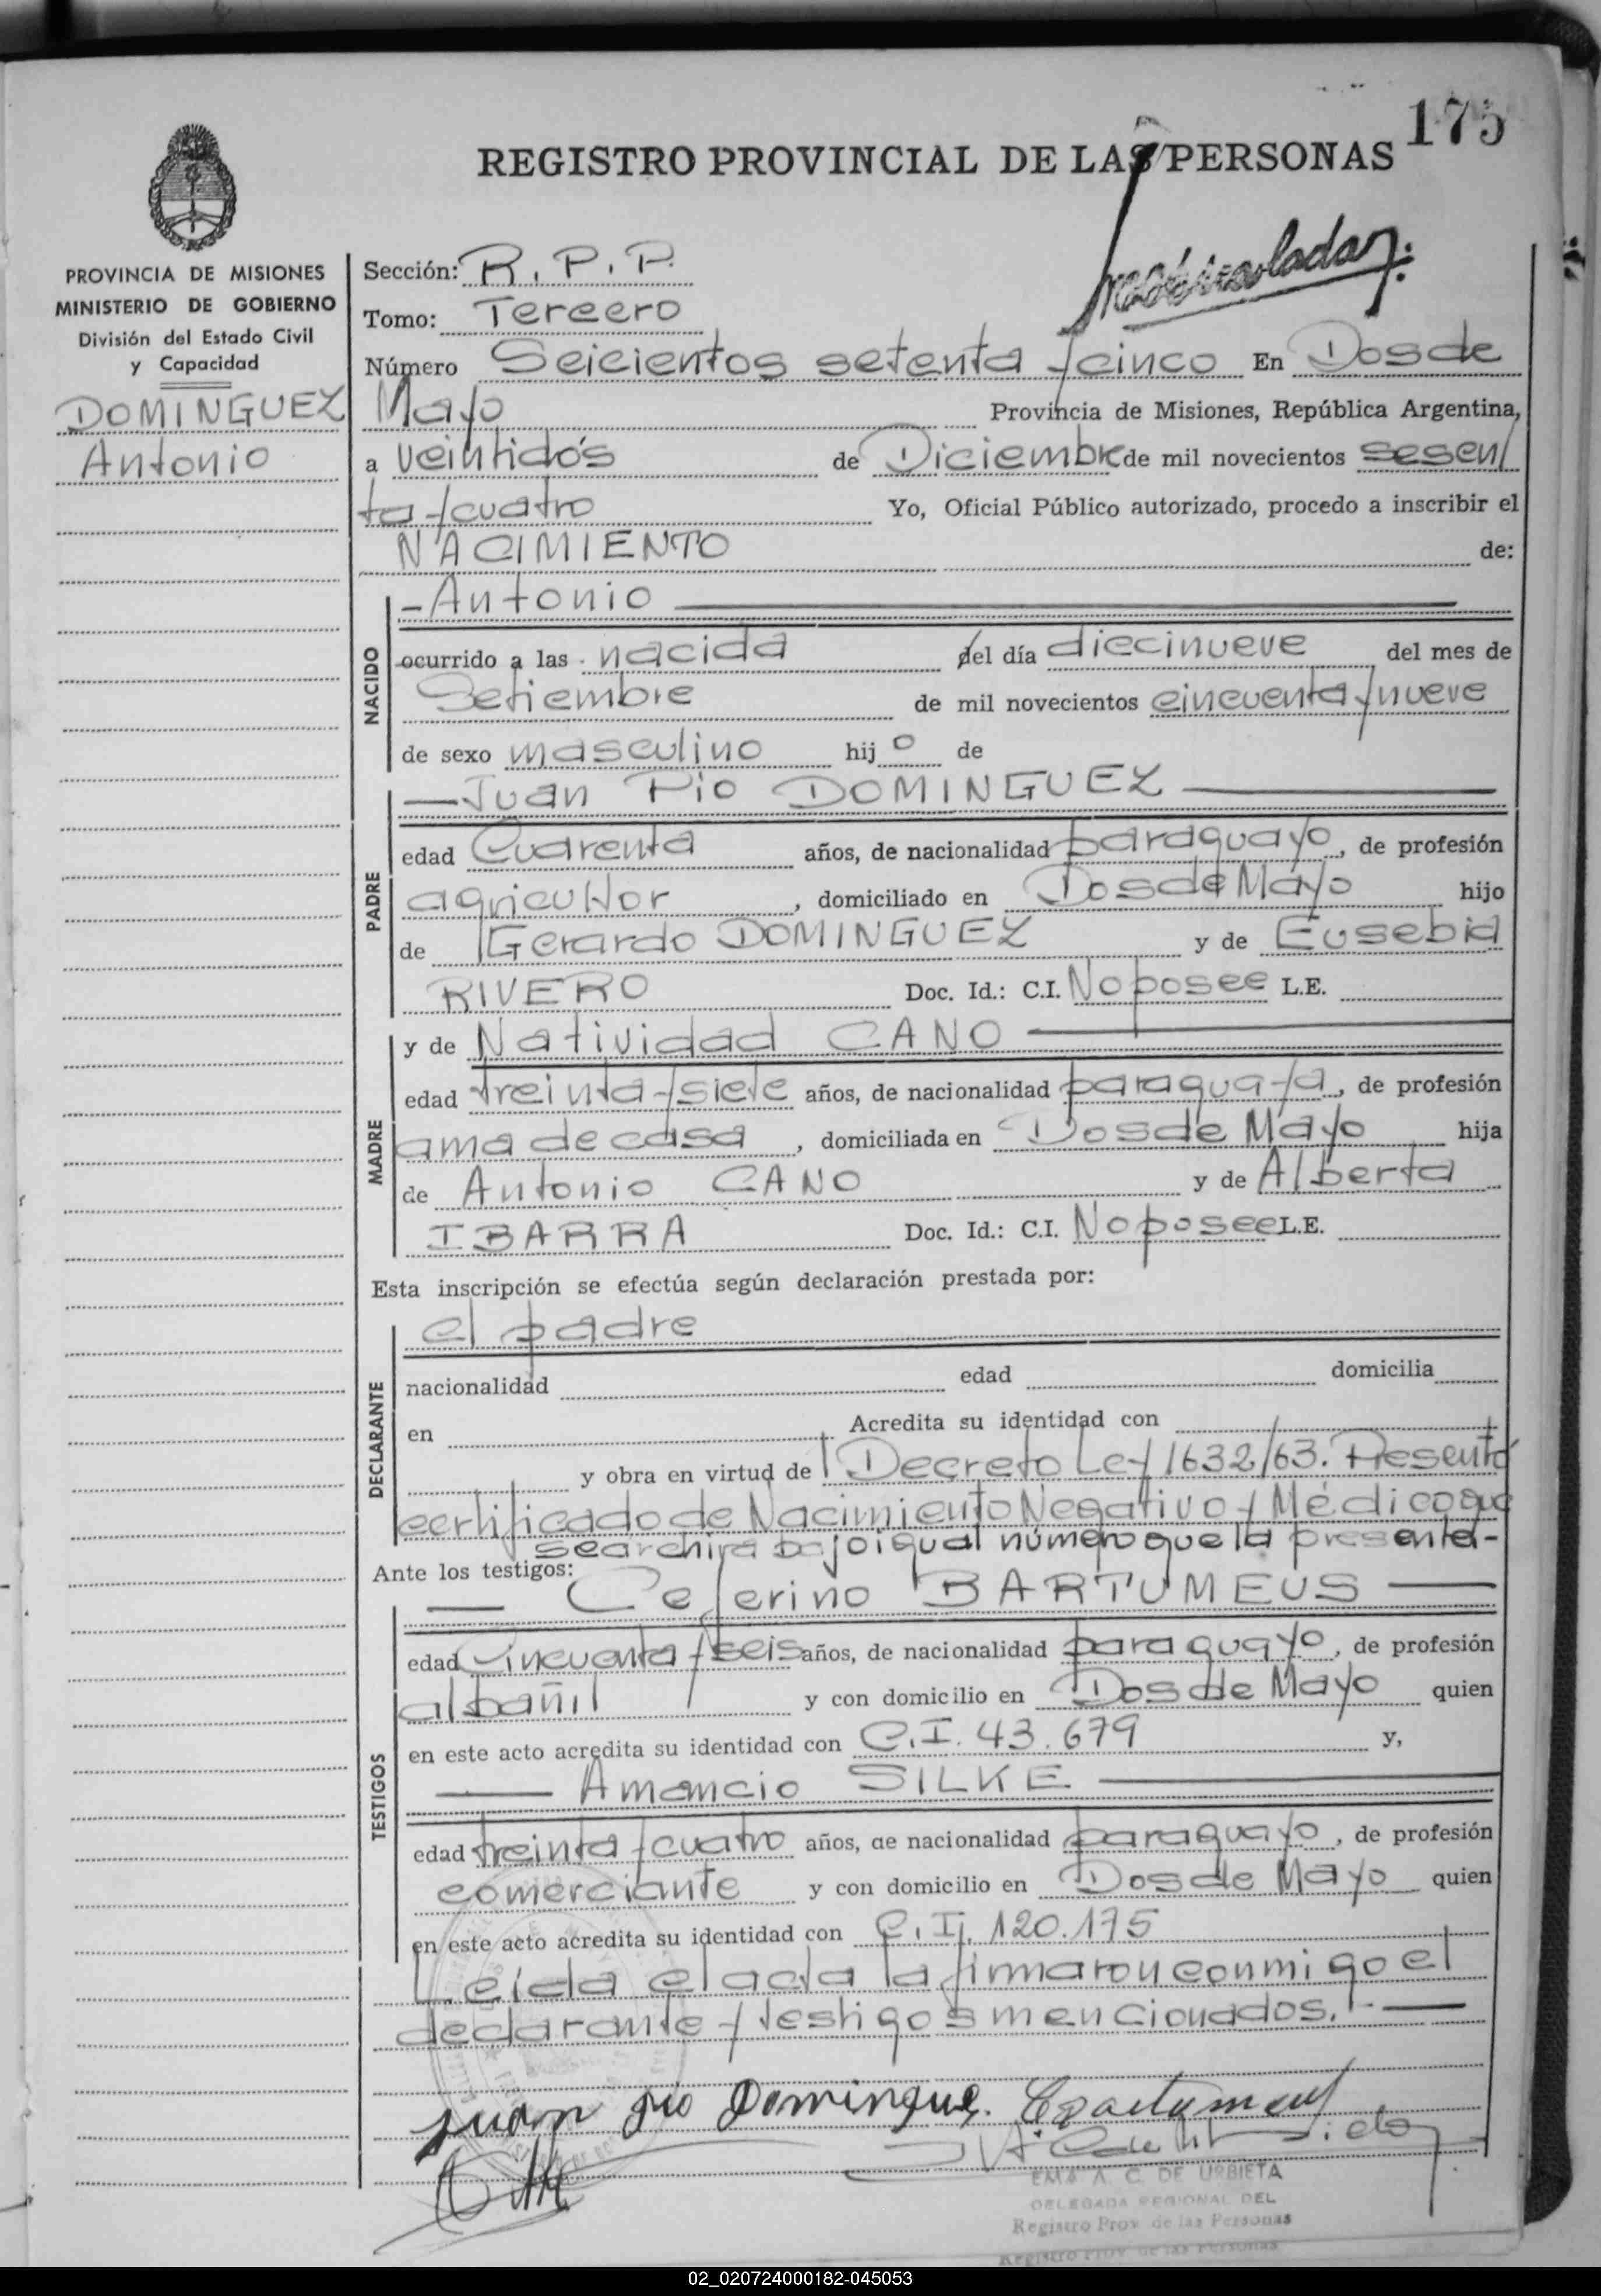 175
REGISTRO PROVINCIAL DE LAS PERSONAS
PROVINCIA DE MISIONES
MINISTERIO DE GOBIERNO
División del Estado Civil
y Capacidad
DOMINGUEZ
Antonio
Sección: R. P. P.
Tomo: Tercero
Número Seicientos setenta y cinco En Dos de
Mayo Provincia de Misiones, República Argentina,
a veintidós de Diciembre de mil novecientos sesen/
ta y cuatro Yo, Oficial Público autorizado, procedo a inscribir el
NACIMIENTO de:
NACIDO
- Antonio
ocurrido a las nacida del día diecinueve del mes de
Setiembre de mil novecientos cincuenta y nueve
de sexo masculino hijo de
PADRE
Juan Pio DOMINGUEZ
edad Cuarenta años, de nacionalidad paraguayo, de profesión
agricultor, domiciliado en Dos de Mayo hijo
de Gerardo DOMINGUEZ y de Eusebia
RIVERO Doc. Id.: C.I. No posee L.E.
MADRE
y de Natividad CANO
edad treinta y siete años, de nacionalidad paraguaya, de profesión
ama de casa, domiciliada en Dos de Mayo hija
de Antonio CANO y de Alberta
IBARRA Doc. Id.: C.I. No posee L.E.
Esta inscripción se efectúa según declaración prestada por:
DECLARANTE
el padre
nacionalidad edad domicilia
en Acredita su identidad con
y obra en virtud de Decreto Ley 1632/63. Presentó
certificado de Nacimiento Negativo y Médico que
se archiva bajo igual número que la presente.-
Ante los testigos:
TESTIGOS
Ceferino BARTUMEUS
edad Cincuenta y seis años, de nacionalidad paraguayo, de profesión
albañil y con domicilio en Dos de Mayo quien
en este acto acredita su identidad con C.I. 43.679 y,
Amancio SILKE
edad treinta y cuatro años, de nacionalidad paraguayo, de profesión
comerciante y con domicilio en Dos de Mayo quien
en este acto acredita su identidad con C.I. 120.175
Leída el acta la firmaron conmigo el
declarante y testigos mencionados.-
Juan pio Domingue.
EMA A. C. DE URBIETA
DELEGADA REGIONAL DEL
Registro Prov. de las Personas
Registro Prov. de las Personas
02_020724000182-045053